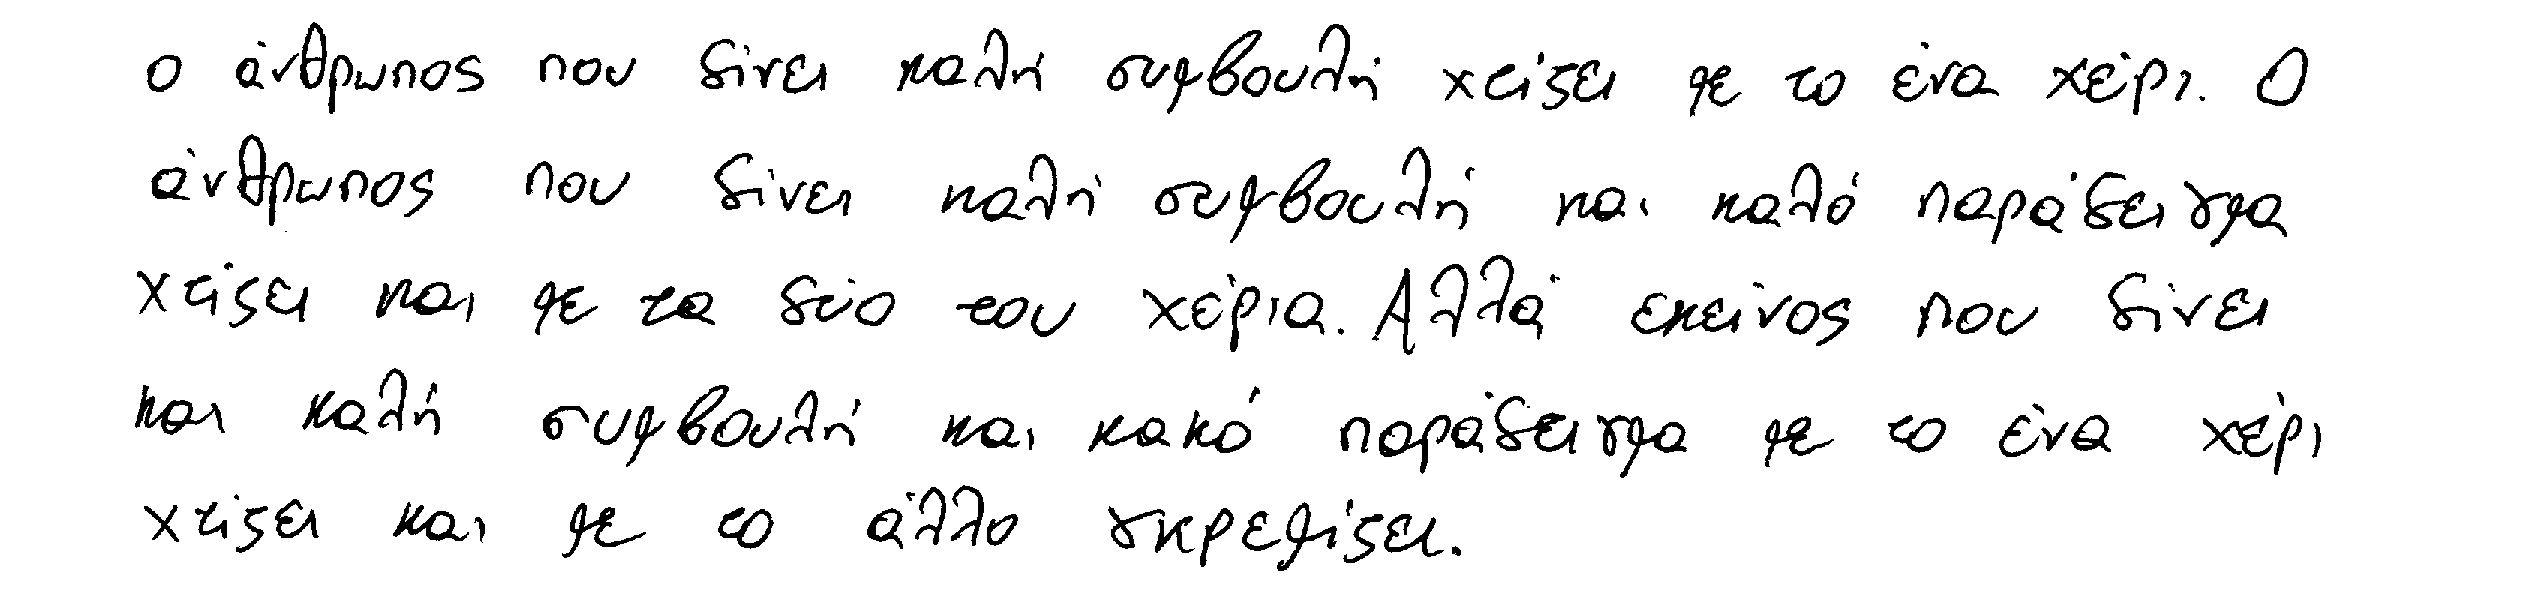 ο άνθρωπος που δίνει καλή συμβουλή χτίζει με το ένα χέρι. Ο
άνθρωπος που δίνει καλή συμβουλή και καλό παράδειγμα
χτίζει και με τα δύο του χέρια. Αλλά εκείνος που δίνει
και καλή συμβουλή και κακό παράδειγμα με το ένα χέρι
χτίζει και με το άλλο γκρεμίζει.